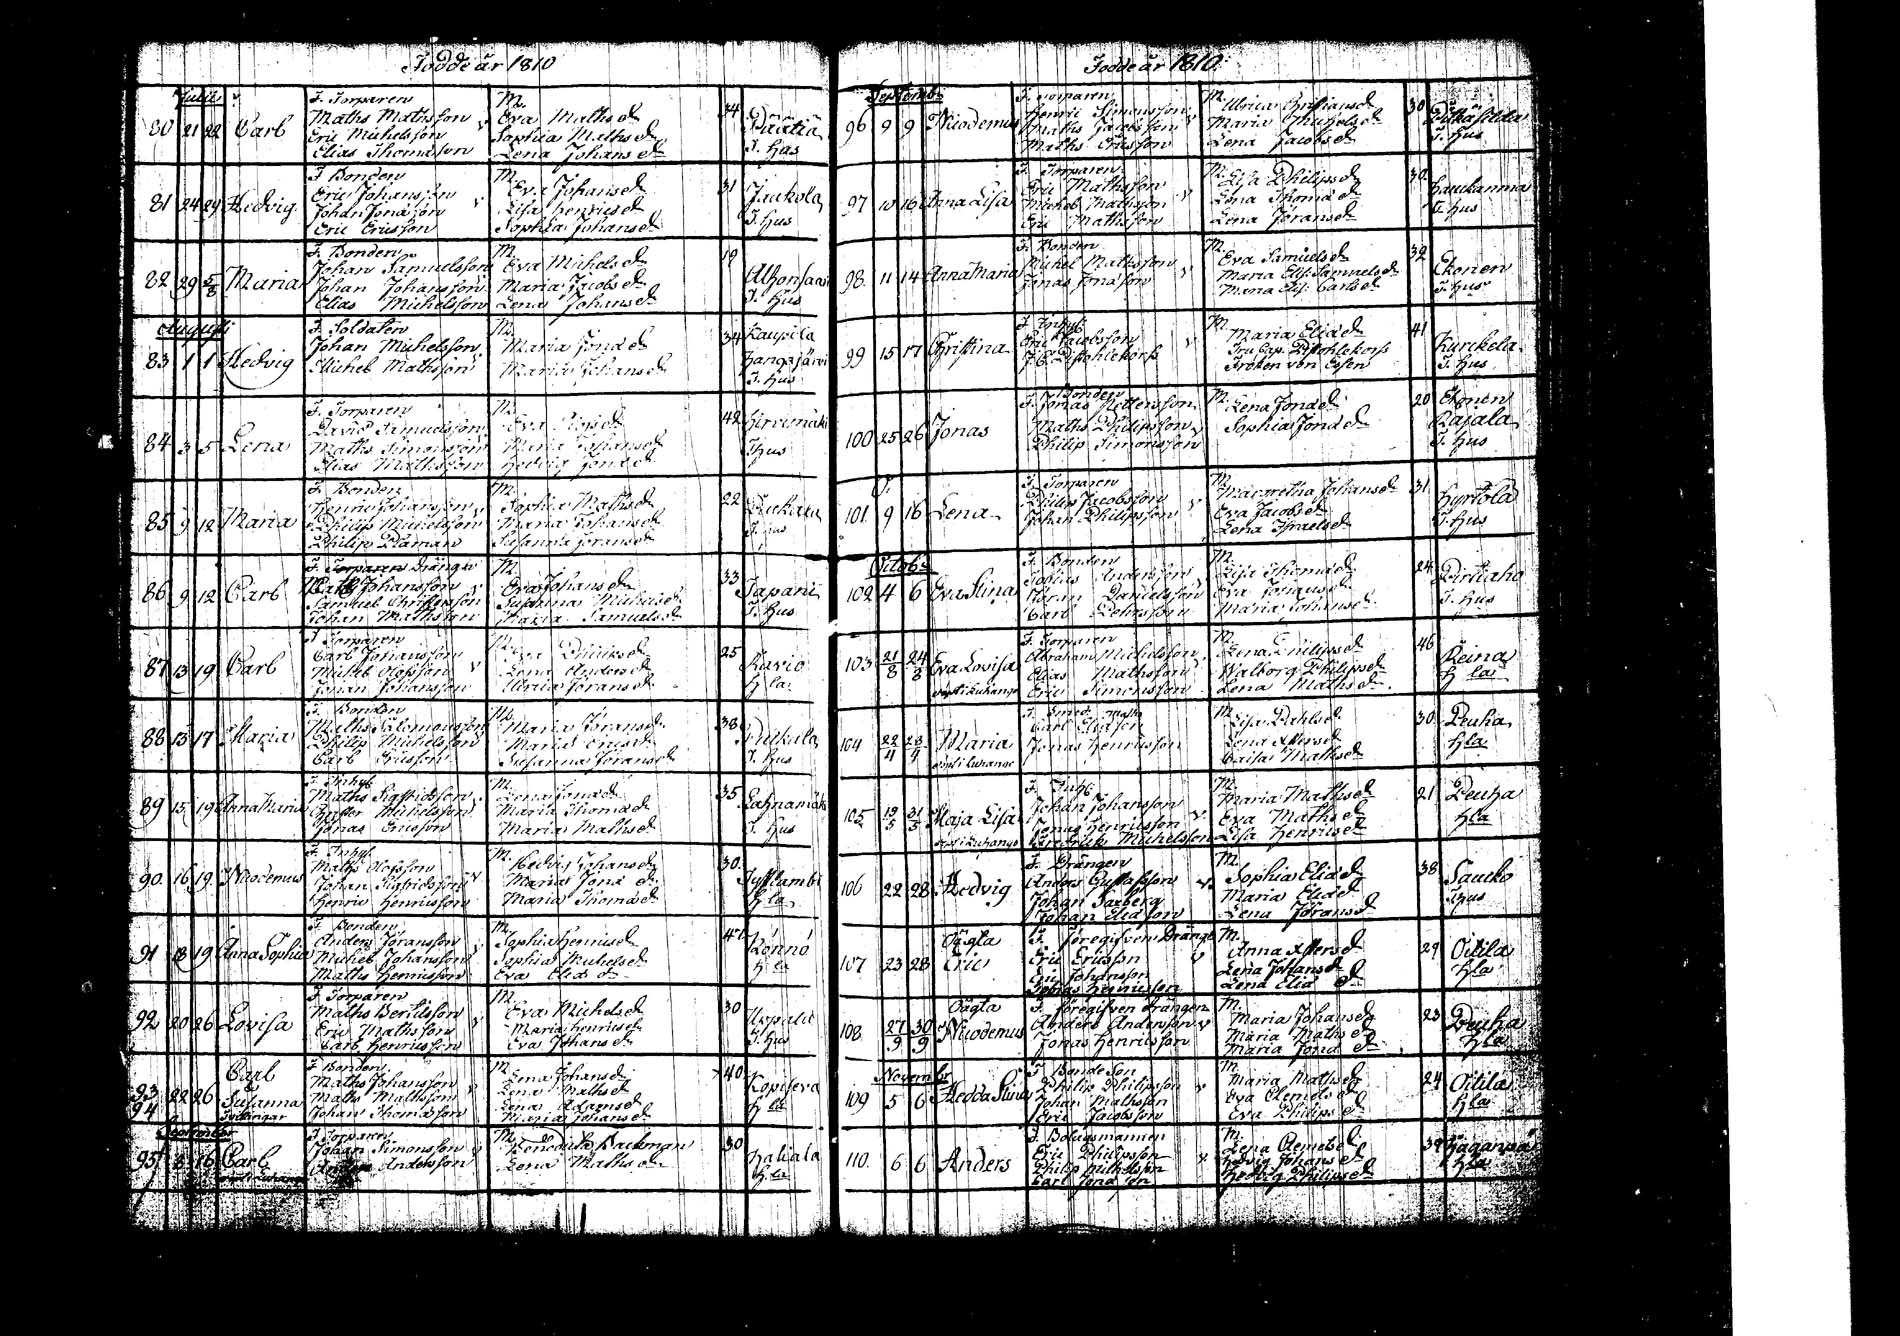 Födde år 1810
Julii
80 21 22 Carl
F. Torparen
Maths Mathsson
Eric Michelsson
Elias Thomasson
M.
Eva Mathsd
Sophia Mathsd
Lena Johansd
34
Päätiä
J. Hus
81 24 29 Hedvig
F Bonden
Eric Johansson
Johan Jonasson
Eric Ericsson
M.
Eva Johansd
Lisa Henricsd
Sophia Johansd
31
Jaukola
J. Hus
82 29 5/8 Maria
F. Bonden
Johan Samuelsson
Johan Johansson
Elias Michelsson
M.
Eva Michelsd
Maria Jacobsd
Lena Johansd
19
J. Hus
Augusti
83 1 1 Hedvig
F. Soldaten
Johan Michelsson
Michel Mathsson
M.
Maria Jonæd
Maria Johansd
34
Kaupila
Kangasjärvi
J. Hus
84 3 5 Lena
F. Torparen
David Samuelsson
Maths Simonsson
Elias Mathsson
M.
Eva
Maria Johansd
Hedvig Jonæd
42
Hirvimäki
J Hus
85 9 12 Maria
F. Bonden
Henric Johansson
Philip Michelsson
Philip Dåman
M.
Sophia Mathsd
Maria Johansd
Susanna Joransd
22
J. Hus
86 9 12 Carl
F. Torparen Dräng
Johansson
Samuel Christersson
Johan Mathsson
M.
Eva Johansd
Susanna Michelsd
Maria Samuelsd
33
Tapani
J. Hus
87 13 19 Carl
F Torparen
Carl Johansson
Michel Olofsson
Johan Johansson
M.
Philipsd
Lena Andersd
Ulrica Joransd
25
Kavio
H la
88 13 17 Maria
F. Bonden
Maths Salomonsson
Philip Michelsson
Carl Ericsson
M.
Maria Joransd
Maria Ericsd
Susanna Joransd
38
Puukula
J. Hus
89 15 19 Anna Maria
F. Inhys
Maths Sigfridsson
Christer Michelsson
Jonas Ericsson
M.
Lena Jonæd
Maria Thomæd
Maria Mathsd
35
Lahnamäki
J. Hus
90 16 19 Nicodemus
F. Inhys
Maths Olofsson
Johan Sigfridsson
Henric Henricsson
M.
Hedvig Johansd
Maria Jonæ d
Maria Thomæd
30
H la
91 18 19 Anna Sophia
F. Bonden
Anders Joransson
Michel Johansson
Maths Henricsson
M.
Sophia Henricsd
Sophia Michelsd
Eva Eliæ d
47
Könnö
H la
92 20 26 Lovisa
F Torparen
Maths Bertilsson
Eric Mathsson
Carl Henricsson
M.
Eva Michelsd
Maria Henricsd
Eva Johansd
30
Uppala
J. Hus
93
94 22 26 Carl
&
Susanna
Tvillingar
F Bonden
Maths Johansson
Maths Mathsson
Johan Thomasson
M.
Lena Johansd
Lena Mathsd
Lena Adamsd
Maria Johansd
40
Kopiseva
H la
September
95 8 16 Carl
F Torparen
Johan Simonsson
Andersson
M.
Benedicta Backman
Lena Mathsd
30
Haliala
H la
Födde år 1810
Septemb:
96 9 9 Nicodemus
F. Torparen
Henric Simonsson
Maths Jacobsson
Maths Ericsson
M.
Ulrica Christiansd
Maria Michelsd
Lena Jacobsd
30
J. Hus
97 10 16 Anna Lisa
F. Torparen
Eric Mathsson
Michel Mathsson
Eric Mathsson
M.
Lisa Philipsd
Lena Thomæd
Lena Joransd
32
Haukanma
J. Hus
98 11 14 Anna Maria
F. Bonden
Michel Mathsson
Jonas Jonasson
M.
Eva Samuelsd
Maria Elis. Samuelsd
Maria Elis. Carlsd
32
Ekonen
J. Hus
99 15 17 Christina
F Inhys
Eric Jacobsson
Pistohlekors
M.
Maria Eliæd
Fru Cap. Pistohlekors
Fröken von Essen
41
Kurekela
J. Hus
100 25 26 Jonas
F. Bonden
Jonas Pettersson
Maths Philipsson
Philip Simonsson
M.
Lena Jonæd
Sophia Jonæd
20
Ekonen
Rajala
J. Hus
101 9 16 Lena
F. Torparen
Philip Jacobsson
Johan Philipsson
M.
Margretha Johansd
Eva Jacobsd
Lena Israelsd
31
Hyrtölä
J. Hus
Octob:
102 4 6 Eva Stina
F Bonden
Tobias Andersson
Göran Danielsson
Carl
M.
Lisa Thomæd
Eva Johansd
Maria Johansd
24
Pirtiaho
J. Hus
103 21/8 24/8 Eva Lovisa
döpt i Kuhango
F. Torparen
Abraham Michelsson
Elias Mathsson
Eric Simonsson
M.
Lena Philipsd
Walborg Philipsd
Lena Mathsd
46
Reina
H la
104 22/4 23/4 Maria
döpt i Kuhango
F. Smed
Carl Eliasson
Jonas Henricsson
M.
Lisa Pahlsd
Lena
Caisa Mathsd
30
Peuha
H la
105 19/5 31/5 Maja Lisa
döpt i Kuhango
F. Inhys
Johan Johansson
Jonas Henricsson
Fredrik Michelsson
M.
Maria Mathsd
Eva Mathsd
Lisa Henricsd
21
Peuha
H la
106 22 28 Hedvig
F. Drängen
Anders Gustafsson
Johan Saxberg
Johan Eliasson
M.
Sophia Eliæd
Maria Eliæd
Lena Joransd
38
Saukko
J Hus
107 23 28 Oägta
Eric
F. föregifven Dräng
Eric Ericsson
Eric Johansson
Tobias Henricsson
M.
Anna
Lena Johansd
Lena Eliæ d
29
Oitila
H la
108 27/9 30/9 Oägta
Nicodemus
F. föregifven drängen
Anders Andersson
Jonas Henricsson
M.
Maria Johansd
Maria Mathsd
Maria Jonæ d
23
Peuha
H la
Novembr
109 5 6 Hedda Stina
F Bonde Son
Philip Philipsson
Johan Mathsson
Eric Jacobsson
M.
Maria Mathsd
Eva Clemetsd
Eva Philipsd
24
Oitila
H la
110. 6 6 Anders
F. Bolagsmannen
Eric Philipsson
Philip Michelsson
Carl Jonasson
M.
Lena Clemetsd
Hedvig Johansd
Hedvig Philipsd
39
H la